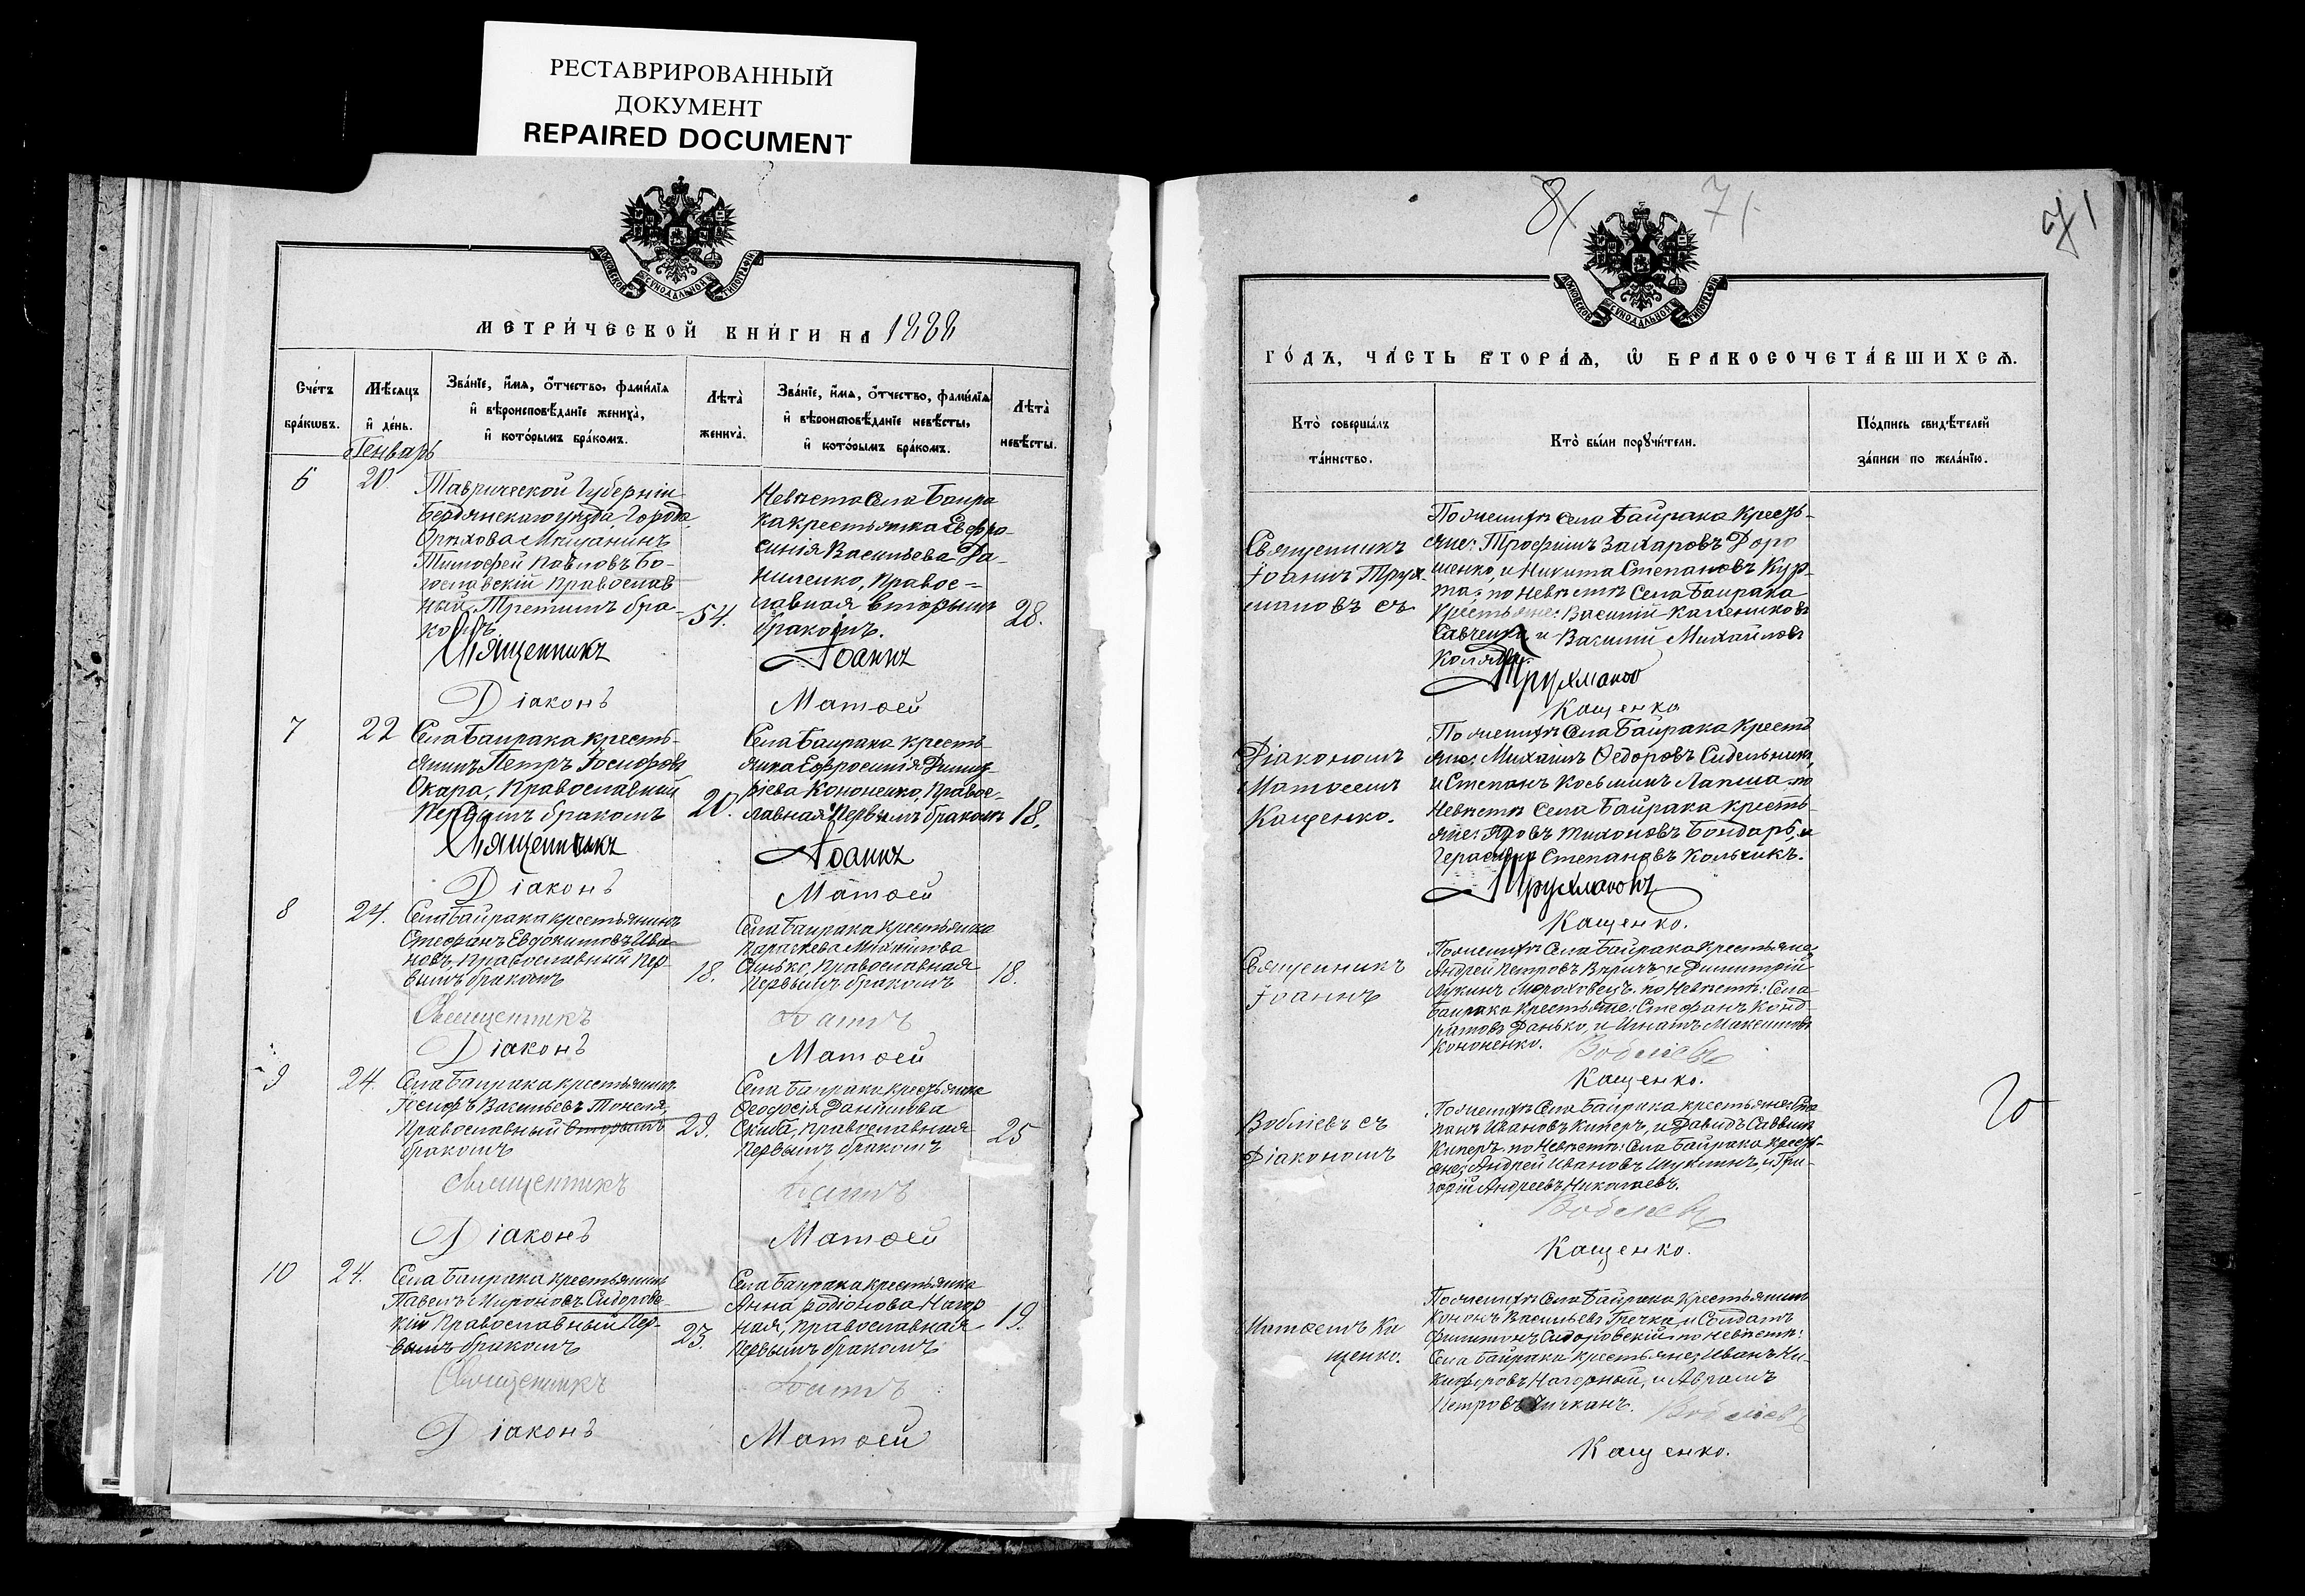 РЕСТАВРИРОВАННЫЙ
ДОКУМЕНТ
REPAIRED DOCUMENT
МЕТРИ́ЧЕСКОЙ КНИ́ГИ НА 1888
Сче́тъ
бра́кѡвъ.
Мѣ́сяцъ
и҆ де́нь.
Генварь
Зва́нїе, и҆́мя, ѻ҆́тчество, фами́лїя
и҆ вѣроисповѣ́данїе жениха̀,
и҆ кото́рымъ бра́комъ.
Лѣта̀
жениха̀.
Зва́нїе, и҆́мя, ѻ҆́тчество, фами́лїя
и҆ вѣроисповѣ́данїе невѣ́сты,
и҆ кото́рымъ бра́комъ.
Лѣта̀
невѣ́сты.
6
20.
Таврической Губерніи
Бердянскаго уѣзда, Города
Орѣхова Мѣщанинъ
Тимофей Павловъ Бо-
гославскій Православ
ный, Третимъ бра-
комъ
54.
Невѣста Села Баира
ка крестьянка Евфро-
синія Васильева Да-
ниленко, Правос=
лавная вторымъ
бракомъ.
28.
Священникъ Іоаннъ
Діаконъ Матѳей
7
22
Села Баирака кресть-
янинъ Петръ Іосифовъ
Окара, Православный
Первымъ бракомъ
20.
Села Баирака кресть-
янка Ефросинія Димит
ріева Кононенко, Правос-
лавная Первымъ бракомъ
18.
Священникъ Іоаннъ
Діаконъ Матѳей
8
24.
Села Байрака крестьянинъ
Стефанъ Евдокимовъ Ива
новъ Православный Пер-
вымъ бракомъ
18.
Села Баирака Крестьянка
Параскева Михайлова
Синько, Православная
Первымъ бракомъ
18.
Священникъ Іоаннъ
Діаконъ Матѳей
9
24.
Села Баирака крестьянинъ
Іосифъ Васильевъ
Православный Вторымъ
бракомъ
29.
Села Баирака крестьянка
Ѳеодосія Даніилова
Скиба, Православная
Первымъ бракомъ
25
Священникъ Іоаннъ
Діаконъ Матѳей
10
24.
Села Баирака крестьянинъ
Павелъ Мироновъ Сидоровс
кій Православный Пер-
вымъ бракомъ
23.
Села Баирака крестьянка
Анна Родіонова Нагор
ная, Православная
Первымъ бракомъ
19.
Священникъ Іоаннъ
Діаконъ Матѳей
8
71
71
ГО́ДЪ, ЧА́СТЬ ВТОРА́Я, Ѡ҆ БРАКОСОЧЕТА́ВШИХСЯ.
Кто̀ соверша́лъ
та́инство.
Кто̀ бы́ли порꙋчи́тели.
По́дпись свидѣ́телей
за́писи по жела́нїю.
Священникъ
Іоаннъ Трух-
мановъ съ
По женихѣ Села Байрака Кресть-
яне: Трофимъ Захаровъ Доро
шенко, и Никита Степановъ Кур-
та; по Невѣстѣ Села Баирака
Крестьяне: Василій
Савченко, и Василій Михайловъ
Коляда.
Трухмановъ
Кащенко
Діакономъ
Матѳеемъ
Кащенко.
По женихѣ Села Байрака Кресть
яне: Михаилъ Ѳедоровъ Сидельников,
и Степанъ Косьминъ Лапша по
Невѣстѣ Села Байрака Кресть-
яне: Яковъ Тихоновъ Бондарь, и
Герасимъ Степановъ Кольчикъ.
Трухмановъ
Кащенко.
Священникъ
Іоаннъ
По женихѣ Села Байрака Крестьяне:
Андрей Петровъ и Димитрій
Лукинъ Мороховецъ. по Невѣстѣ: Села
Баирака Крестьяне: Стефанъ Конд-
ратовъ Данько, и Игнатъ Максимовъ
Кононенко.
Воблиевъ
Кащенко.
Воблиевъ съ
Діакономъ
По женихѣ Села Байрака крестьяне: Сте
панъ Ивановъ Киперъ, и Давидъ Саввинъ
Киперъ. по Невѣстѣ: Села Байрака Кресть-
яне: Андрей Ивановъ и Гри-
горій Андреевъ Николаевъ.
Воблиевъ
Кащенко.
20
Матѳемъ Ка
щенко.
По женихѣ Села Байрака Крестьянинъ
Кононъ Васильевъ Гречка, и Солдатъ
Филимонъ Сидоровскій по Невѣстѣ:
Села Байрака Крестьяне: Иванъ Ни-
кифоровъ Нагорный, и Абрамъ
Петровъ Чичканъ.
Воблиевъ
Кащенко.